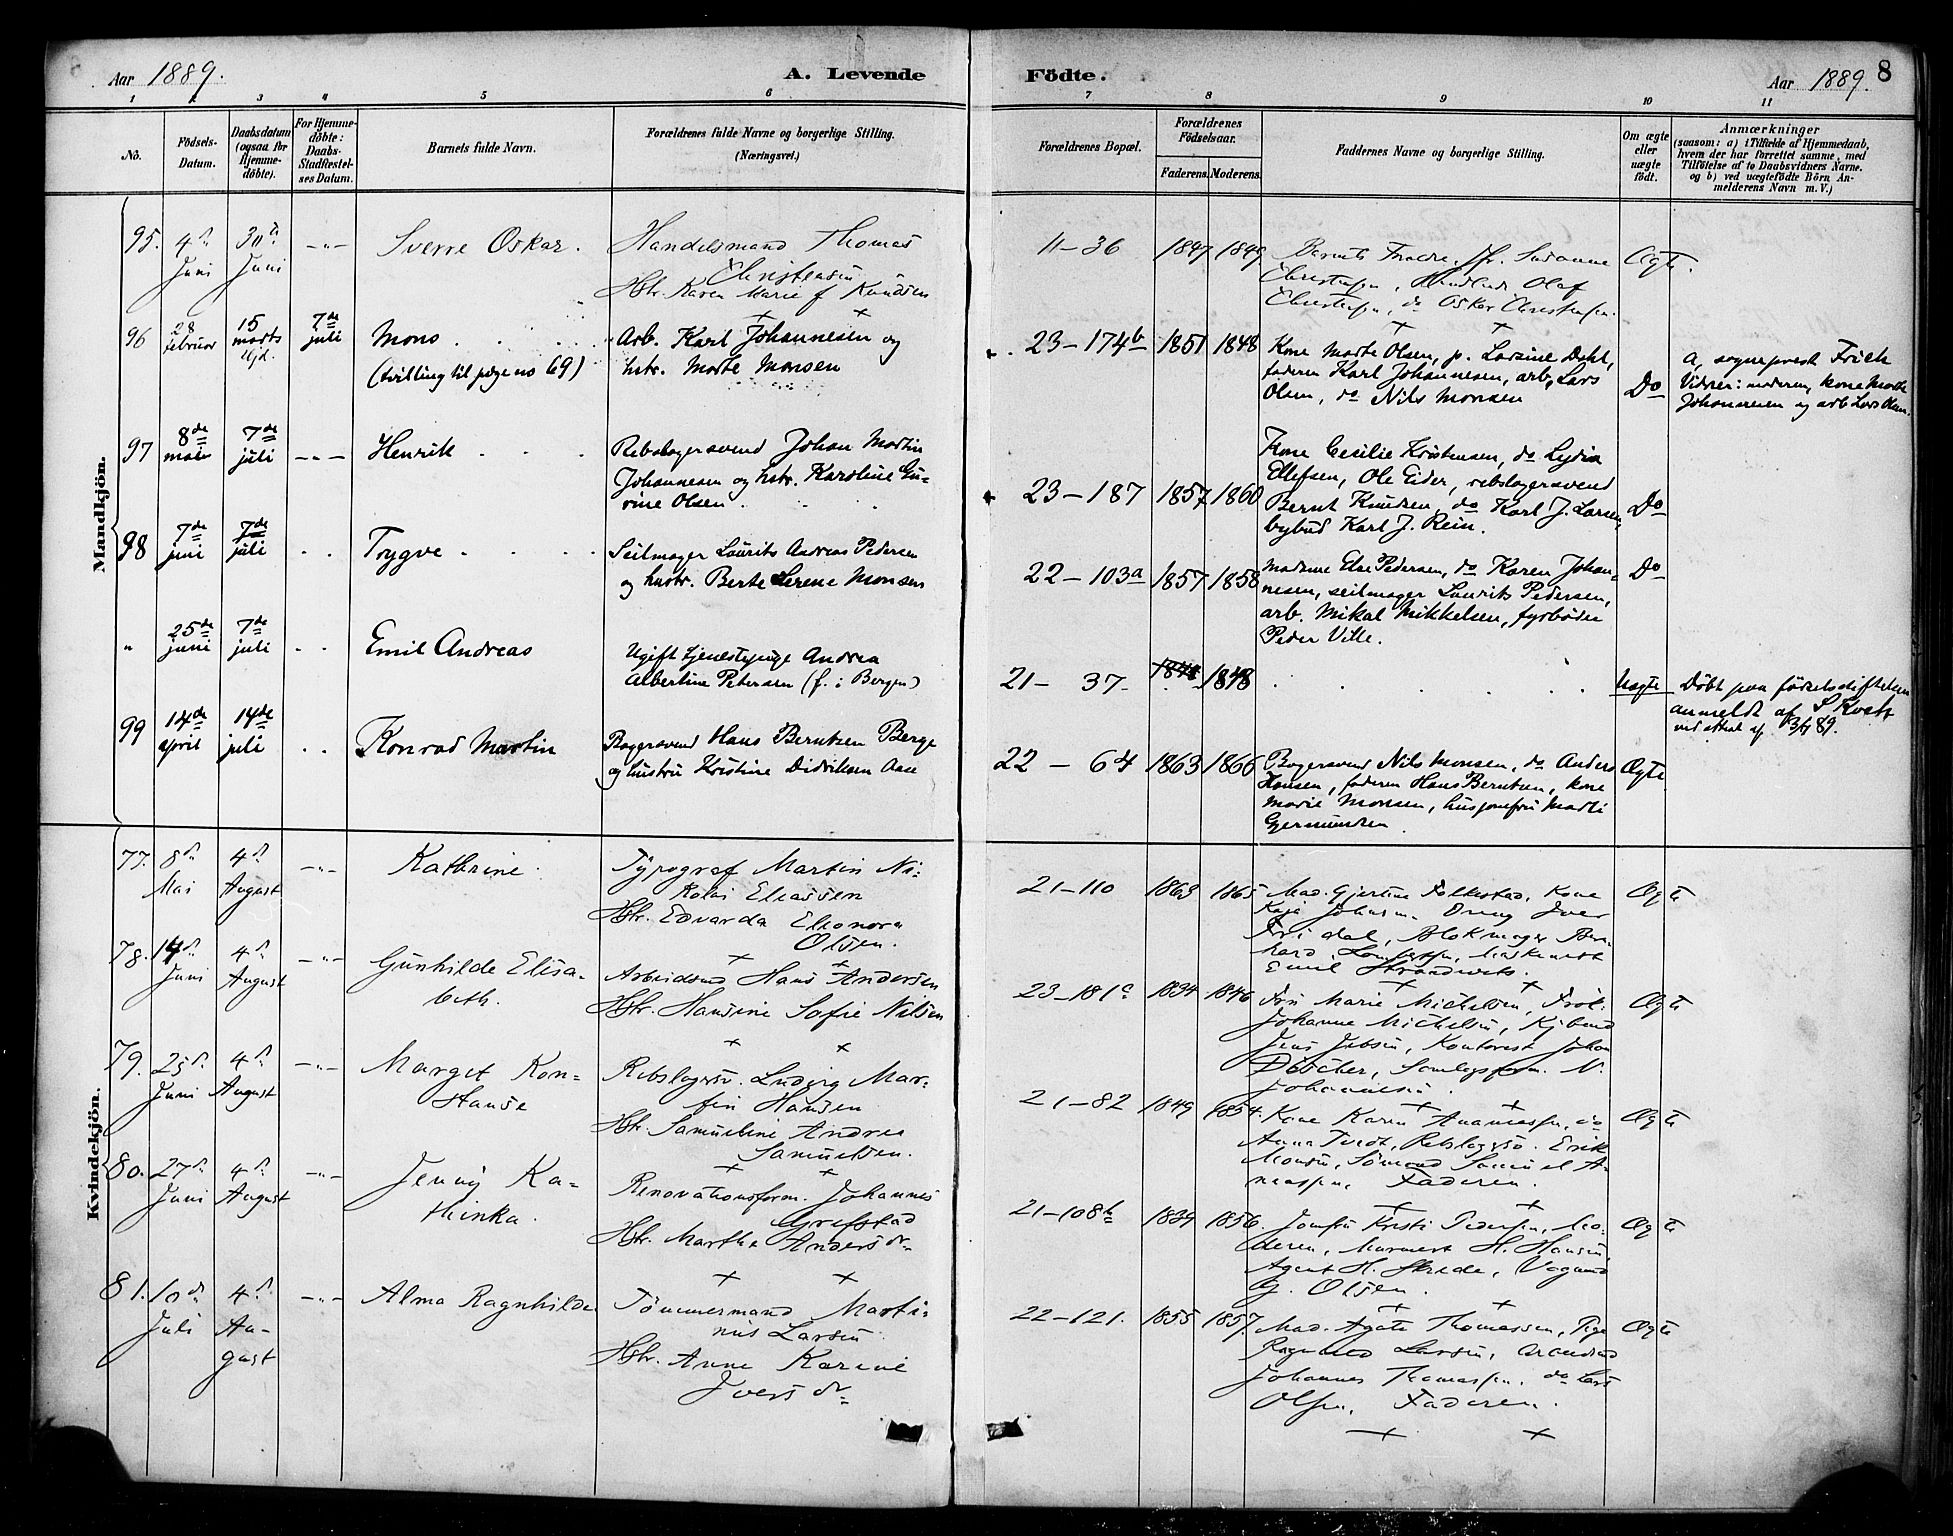 Aar 1889.
A. Levende
Födte.
Aar 1889.
8
1 2 3 4 5 6
7 8 9 10 11
No.
Födsels-
Datum.
Daabsdatum
(ogsaa for
Hjemme-
döbte).
For Hjemme-
döbte:
Daabs-
Stadfæstel-
ses Datum.
Barnets fulde Navn.
Forældrenes fulde Navne og borgerlige Stilling.
(Næringsvei.)
Forældrenes Bopæl.
Forældrenes
Födselsaar.
Faderens. Moderens.
Faddernes Navne og borgerlige Stilling.
Om ægte
eller
uægte
födt.
Anmærkninger
(saasom: a) i Tilfælde af Hjemmedaab,
hvem der har forrettet samme, med
Tilföielse af to Daabsvidners Navne.
og b) ved uægtefödte Börn An-
melderens Navn m. V.)
Mandkjön.
95. 4de Juni
30te Juni
Sverre Oskar.
Handelsmand Thomas
Christensen
Hstr. Karen Marie f Knudsen
11-36
1847 1849
Christensen, Olaf
Christensen, do Oskar Christensen.
Ægte.
96
28 februar
15 marts
Hjd.
7de juli
Mons
(tvilling til pige no 69)
Arb. Karl Johannesen og
hstr. Marte Monsen
23-174b
1851 1848
Kone Marte Olsen, p. Larsine Dahl,
faderen Karl Johannesen, arb. Lars
Olsen, do Nils Monsen
Do
a, sogneprest Frich
Vidner: moderen, kone Marte
Johannesen og arb Lars Olsen.
97
8de mai
7de juli
Henrik
Rebslagersvend Johan Martin
Johannesen og hstr. Karoline Gu-
rine Olsen.
23-187
1857 1860
Kone Cecilie Kristensen, do Lydia
Ellefsen, Ole Eider, rebslagersvend
Bernt Knudsen, do Karl J. Larsen,
bybud Karl J. Rein.
Do
98
7de juni
7de juli
Trygve
Seilmager Laurits Andreas Pedersen
og hustr. Berte Serene Monsen
22-103a
1857 1858
madame Else Pedersen, do Karen Johan-
nesen, seilmager Laurits Pedersen,
arb. Mikal Mikkelsen, fyrböder
Peder Ville.
Do
"
25de juni
7de juli
Emil Andreas
Ugift tjenestepige Andrea
Albertine Petersen (f. i Bergen)
21-37
1848
Uægte
Döbt paa födselsstiftelsen
anmeldt af
99
14de april
14de juli
Konrad Martin
Bagersvend Hans Berntsen Berge
og hustru Kristine Didriksen Aase
22-64
1863 1866
Bagersvend Nils Monsen, do Anders
Hansen, faderen Hans Berntsen, kone
Marie Monsen, husjomfru Marti
Gjermundsen
Ægte
Kvindekjön.
77.
8de Mai
4de August
Kathrine.
Typograf Martin Ni-
kolai Eliassen
Hstr. Edvarda Eleonora
Olsen.
21-110
1863 1865
Mad. Gjertine Folkestad, Kone
Kaja Johnsen, Iver
Fridal, Blokmager Bern-
hard
Emil
Ægte
78.
14de Juni
4de August
Gunhilde Elisa-
beth.
Arbeidsmd Hans Andersen
Hstr. Hansine Sofie Nilsen
23-181c
1834 1846
Fru Marie Michelsen, Frök.
Johanne Michelsen, Kjbmd
Jens Jebsen, Kontorist Johan
Döscher, N.
Johannesen.
Ægte
79.
25de Juni
4de August
Marget Kon-
stanse
Rebslagersv. Ludvig Mar-
tin Hansen
Hstr. Samueline Andrea
Samuelsen.
21-82
1849 1854.
Kone Karen Ananiassen, do
Anna Tvedt, Rebslagersv. Erik
Monsen, Sömand Samuel A-
naassen, Faderen.
Ægte
80.
27de Juni
4de August
Jenny Ka-
thinka.
Renovationsform. Johannes
Grefstad
Hstr. Marthe Andersdr
21-108b
1839 1856.
Jomfru Kristi Pedersen, Mo-
deren, H. Hansen
Agent H. Skrede, Vognmd
G. Olsen.
Ægte
81.
10de Juli
4de Au-
gust
Alma Ragnhilde
Tömmermand Marti-
nus Larsen
Hstr. Anne Karine
Iversdr
22-121.
1855 1857.
Mad. Agate Thomassen, Pige
Ragnhild Larsen, Arbeidsmd
Johannes Thomassen, do Lars
Olsen, Faderen.
Ægte